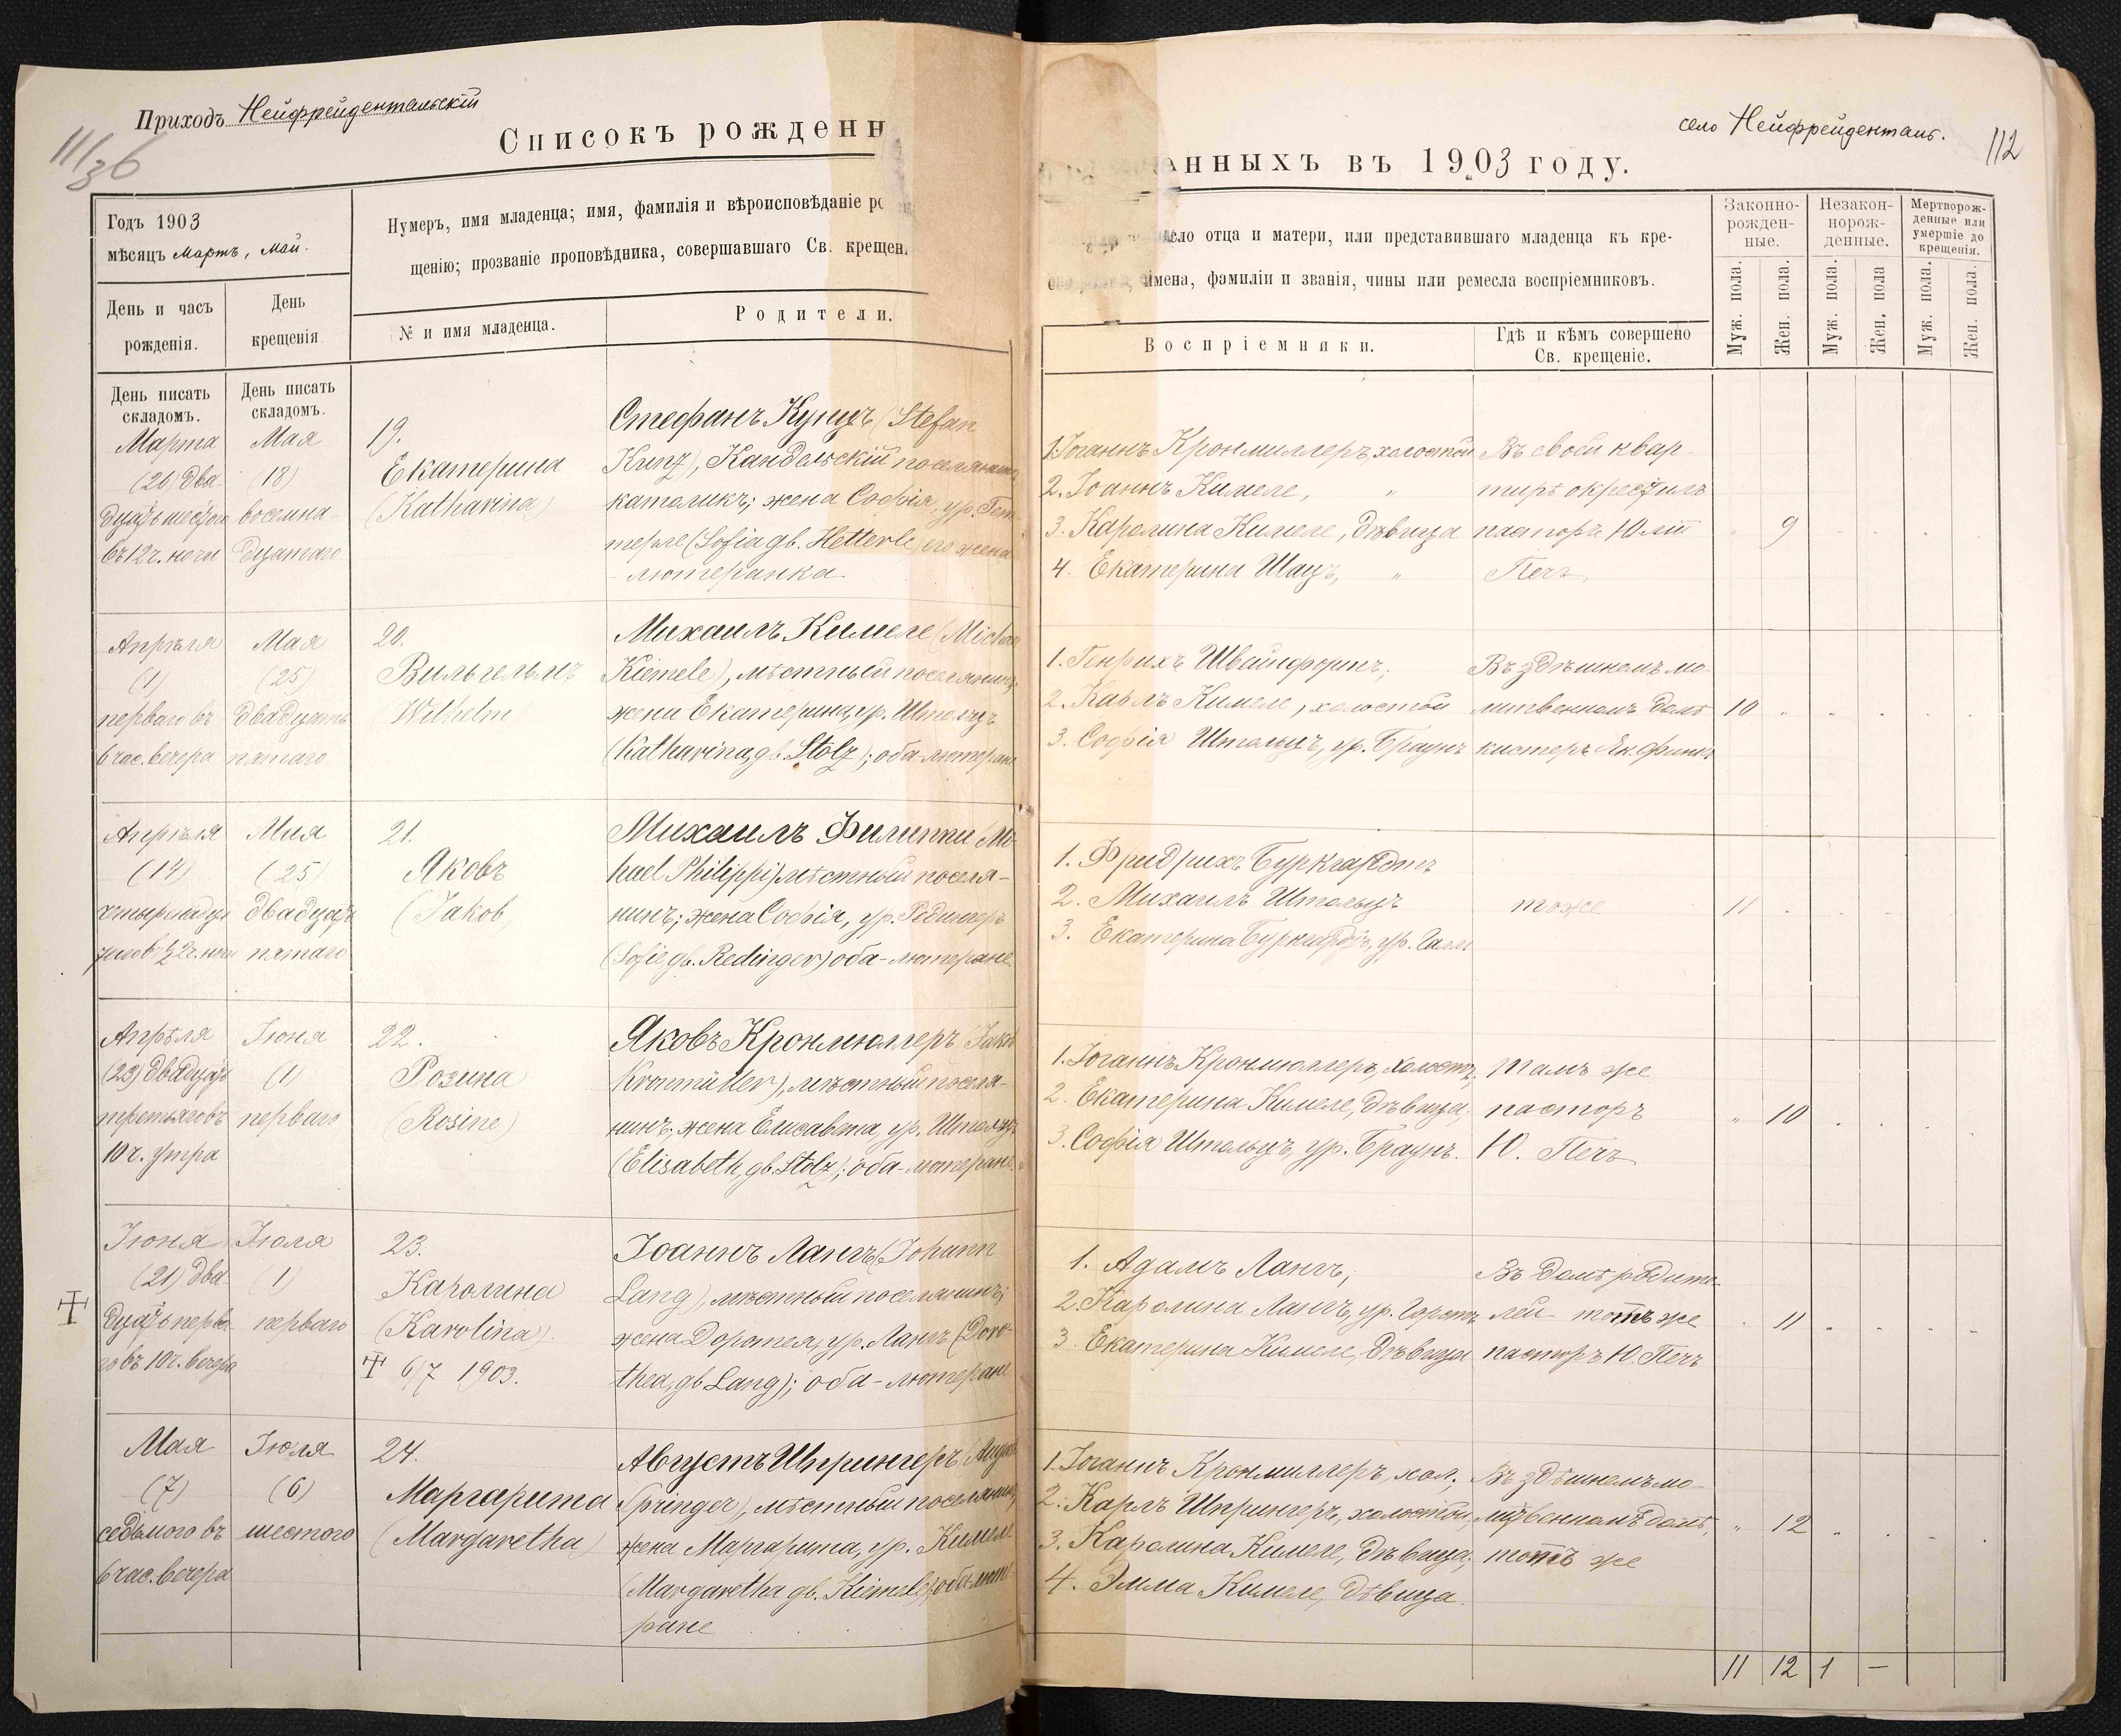 Приходъ Нейфрейдентальскій
11/36
Списокъ рожденн
Годъ 1903
мѣсяцъ Мартъ, Май.
Нумеръ, имя младенца; имя, фамилія и вѣроисповѣданіе
щенію; прозваніе проповѣдника, совершавшаго Св. крещен
День и часъ
рожденія.
День
крещенія
№ и имя младенца.
Родители.
День писать
складомъ.
День писать
складомъ.
Марта
(26) два
дцать шестого
въ 12 ч. ночи
Мая
(18)
восемна-
дцатаго
19.
Екатерина
(Katharina)
Стефанъ Кунцъ (Stefan
Kunz), Кандельскій поселянинъ
католикъ; жена Софія, ур. Гет-
терле (Sofia gb. Hetterle) его жена
лютеранка
Апрѣля
(1)
перваго въ
6 час. вечера
Мая
(25)
двадцать
пятаго
20.
Вильгельмъ
Wilhelm
Михаилъ Кимеле (Michael
Kiemele), мѣстный поселянинъ;
жена Екатерина, ур. Штольцъ
(Katharina, gb. Stolz); оба-лютеране
Апрѣля
(14)
Мая
(25)
двадцать
пятаго
21.
Яковъ
(Jakob)
Михаилъ Филиппи Mi-
hael Philippi) мѣстный поселя-
нинъ; жена Софія, ур. Редингеръ
(Sofie, gb. Redinger) оба-лютеране.
Апрѣля
(23) двадцать
третьяго въ
10 ч. утра
Іюня
(1)
перваго
22.
Розина
(Rosine)
Яковъ Кронмюллеръ (Jakob
Kronmüller), мѣстный поселя-
нинъ; жена Елисавета, ур. Штольцъ
(Elisabeth, gb. Stolz); оба-лютеране.
Іюня
(21) два-
дцать перва-
го въ 10 ч. вечера
Іюля
(1)
перваго
23.
Каролина
(Karolina).
6/7 1903.
Іоаннъ Лангъ (Johann
Lang), мѣстный поселянинъ;
жена Доротея, ур. Лангъ (Doro-
thea, gb Lang); оба-лютеране
Мая
(7)
седьмого въ
6 час. вечера
Іюля
(6)
шестого
24.
Маргарита
(Margaretha)
Августъ Шпрингеръ (August
Springer), мѣстный поселянинъ,
жена Маргарита, ур. Кимеле
(Margaretha gb. Kiemele); оба-люте
ране
село Нейфрейденталь.
112
анныхъ въ 1903 году.
ло отца и матери, или представившаго младенца къ кре-
имена, фамиліи и званія, чины или ремесла воспріемниковъ.
Воспріемники.
Гдѣ и кѣмъ совершено
Св. крещеніе.
Законно-
рожден-
ные.
Незакон-
норож-
денные.
Мертворож-
денные или
умершіе до
крещенія.
Муж. пола.
Жен. пола.
Муж. пола.
Жен. пола
Муж. пола.
Жен. пола.
1. Іоганнъ Кронмиллеръ, холостой
2. Іоаннъ Кимеле, "
3. Каролина Кимеле, дѣвица
4. Екатерина Шацъ, "
Въ своей квар-
тирѣ окрестилъ
пасторъ Юлій
Печъ.
9
1. Генрихъ Швайнфортъ;
2. Павлъ Кимеле, холостой
3. Софія Штольцъ, ур. Браунъ
Въ здѣшнемъ мо-
литвенномъ домѣ
кистеръ Як. Финкъ
10
1. Фридрихъ Бургкардтъ
2. Михаилъ Штольцъ
3. Екатерина Бургкардтъ, ур.
тоже
11
1. Іоганнъ Кронмюллеръ, холостъ,
2. Екатерина Кимеле, дѣвица;
3. Софія Штольцъ, ур. Браунъ.
Тамъ же
пасторъ
Ю. Печъ
" 10
1. Адамъ Лангъ,
2. Каролина Лангъ, ур. Горстъ
3. Екатерина Кимеле, дѣвица
Въ домѣ родите-
лей тотъ же
пасторъ Ю. Печъ
11
1. Іоганнъ Кронмиллеръ, хол.;
2. Карлъ Шпрингеръ, холостой;
3. Каролина Кимеле, дѣвица;
4. Эмма Кимеле, дѣвица.
Въ здѣшнемъ мо-
литвенномъ домѣ,
тотъ же
" 12
11 12 1 —